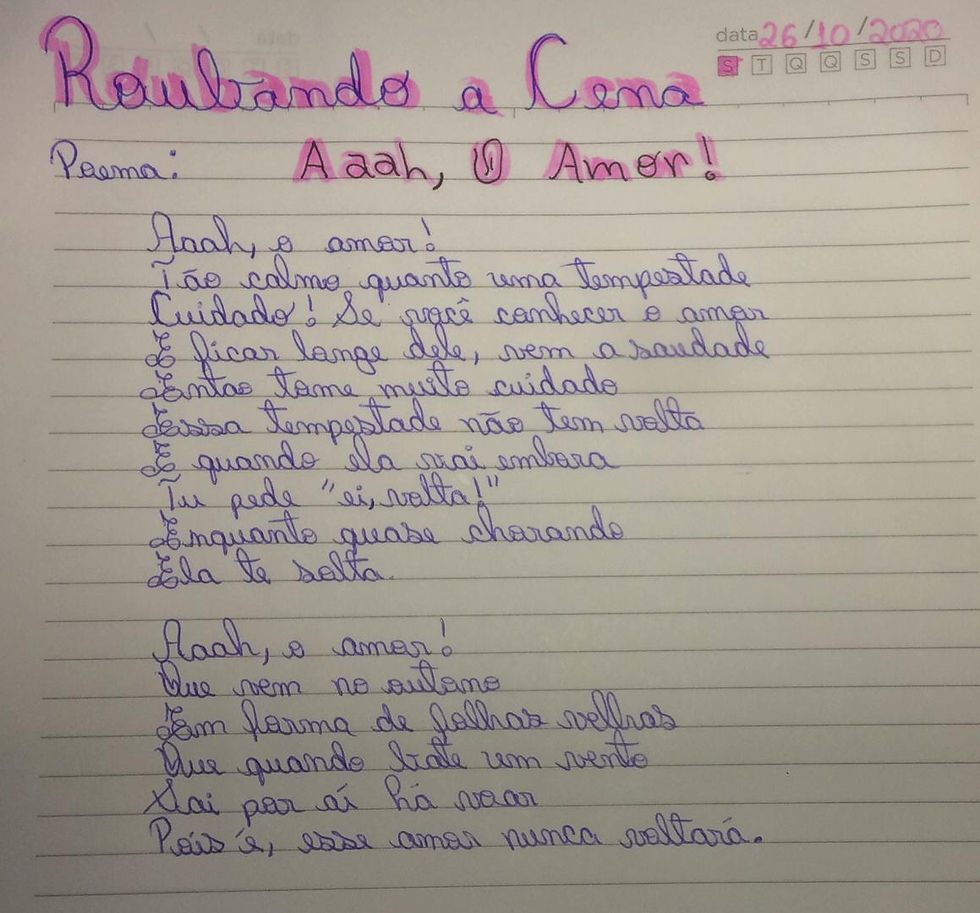 data 26/10/2020
S T Q Q S S D
Roubando a Cena
Poema: Aaah, O Amor!
Aaah, o amor!
Tão calmo quanto uma tempestade
Cuidado! Se você conhecer o amor
E ficar longe dele, vem a saudade
Entao tome muito cuidado
Essa tempestade não tem volta
E quando ela vai embora
Tu pede "ei, volta!"
Enquanto quase chorando
Ela te solta.
Aaah, o amor!
Que vem no outono
Em forma de folhas velhas
Que quando bate um vento
Sai por aí há voar
Pois é, esse amor nunca voltará.